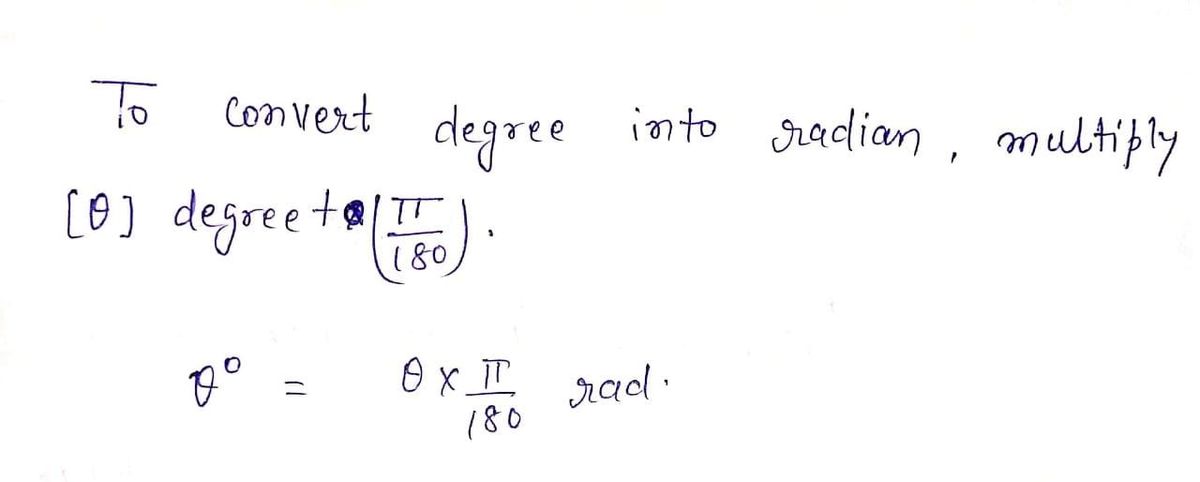 To convert degree into radian, multiply
[θ] degree to (π/180).
θ° = θ × π/180 rad.